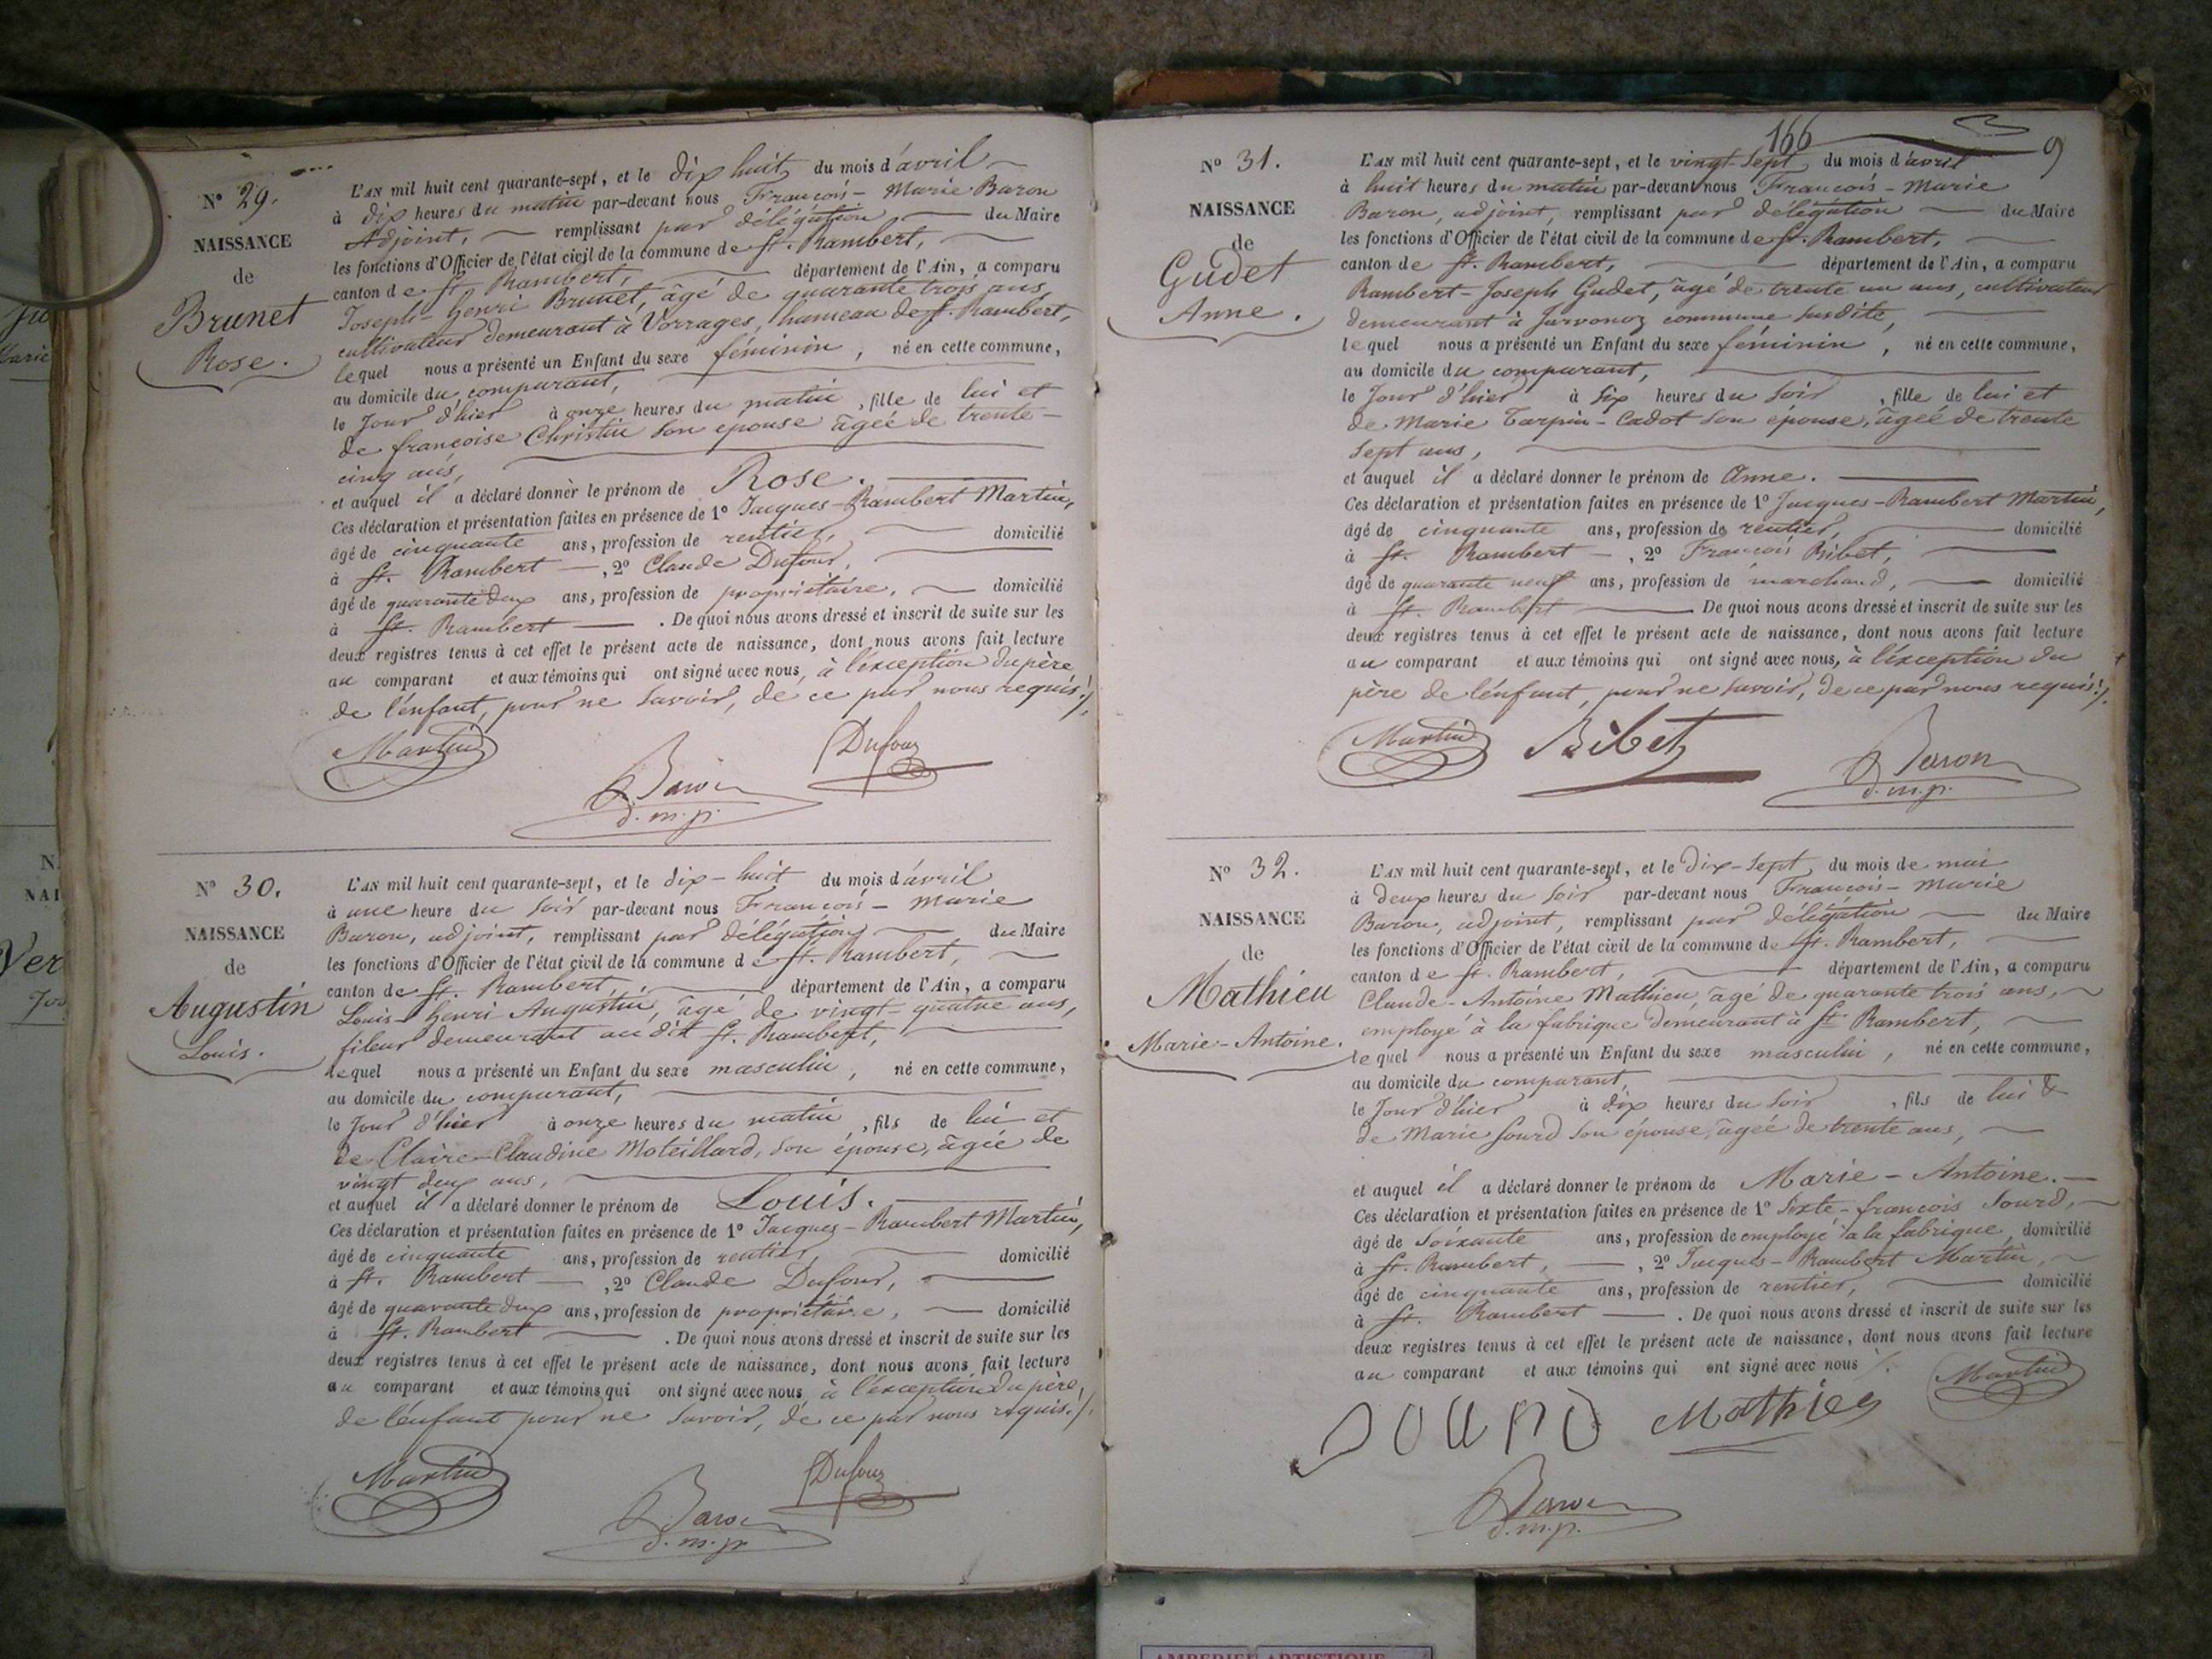 Nº 29.
NAISSANCE
de
Brunet
Rose.
L'AN mil huit cent quarante-sept, et le dix huit du mois d'avril
à dix heures du matin par-devant nous François-Marie Baron
Adjoint, remplissant par délégation du Maire
les fonctions d'Officier de l'état civil de la commune de St. Rambert,
canton de St. Rambert, département de l'Ain, a comparu
Joseph-henri Brunet, âgé de quarante trois ans,
cultivateur demeurant à Vorrages, hameau de St. Rambert,
lequel nous a présenté un Enfant du sexe féminin, né en cette commune,
au domicile du comparant,
le Jour d'hier à onze heures du matin, fille de lui et
de françoise Christin son épouse âgée de trente-
cinq ans,
et auquel il a déclaré donner le prénom de Rose.
Ces déclaration et présentation faites en présence de 1º Jacques-Rambert Martin,
âgé de cinquante ans, profession de rentier, domicilié
à St. Rambert, 2º Claude Dufour,
âgé de quarante deux ans, profession de propriétaire, domicilié
à St. Rambert. De quoi nous avons dressé et inscrit de suite sur les
deux registres tenus à cet effet le présent acte de naissance, dont nous avons fait lecture
au comparant et aux témoins qui ont signé avec nous, à l'exception du père
de l'enfant, pour ne savoir, de ce par nous requis./.
Martin
Dufour
Baron
d.m.p.
Nº 30.
NAISSANCE
de
Augustin
Louis.
L'AN mil huit cent quarante-sept, et le dix-huit du mois d'avril
à une heure du soir par-devant nous François-Marie
Baron, adjoint, remplissant par délégation du Maire
les fonctions d'Officier de l'état civil de la commune de St. Rambert,
canton de St. Rambert, département de l'Ain, a comparu
Louis-henri Augustin, âgé de vingt-quatre ans,
fileur demeurant au dit St. Rambert,
lequel nous a présenté un Enfant du sexe masculin, né en cette commune,
au domicile du comparant,
le Jour d'hier à onze heures du matin, fils de lui et
de Claire-Claudine Moteillard, son épouse, âgée de
vingt deux ans,
et auquel il a déclaré donner le prénom de Louis.
Ces déclaration et présentation faites en présence de 1º Jacques-Rambert Martin,
âgé de cinquante ans, profession de rentier, domicilié
à St. Rambert, 2º Claude Dufour,
âgé de quarante deux ans, profession de propriétaire, domicilié
à St. Rambert. De quoi nous avons dressé et inscrit de suite sur les
deux registres tenus à cet effet le présent acte de naissance, dont nous avons fait lecture
au comparant et aux témoins qui ont signé avec nous à l'exception du père,
de l'enfant pour ne savoir, de ce par nous requis./.
Martin
Dufour
Baron
d.m.p.
166
9
Nº 31.
NAISSANCE
de
Gudet
Anne.
L'AN mil huit cent quarante-sept, et le vingt-sept du mois d'avril
à huit heures du matin par-devant nous François-Marie
Baron, adjoint, remplissant par délégation du Maire
les fonctions d'Officier de l'état civil de la commune de St. Rambert,
canton de St. Rambert, département de l'Ain, a comparu
Rambert-Joseph Gudet, âgé de trente un ans, cultivateur
demeurant à Jarvonoz commune susdite,
lequel nous a présenté un Enfant du sexe féminin, né en cette commune,
au domicile du comparant,
le Jour d'hier à six heures du soir, fille de lui et
de Marie Carpin-Cadot son épouse, âgée de trente
sept ans,
et auquel il a déclaré donner le prénom de Anne.
Ces déclaration et présentation faites en présence de 1º Jacques-Rambert Martin,
âgé de cinquante ans, profession de rentier, domicilié
à St. Rambert, 2º François Bibet,
âgé de quarante neuf ans, profession de marchand, domicilié
à St. Rambert De quoi nous avons dressé et inscrit de suite sur les
deux registres tenus à cet effet le présent acte de naissance, dont nous avons fait lecture
au comparant et aux témoins qui ont signé avec nous, à l'exception du
père de l'enfant, pour ne savoir, de ce par nous requis./.
Martin
Bibet
Baron
d.m.p.
Nº 32.
NAISSANCE
de
Mathieu
Marie-Antoine.
L'AN mil huit cent quarante-sept, et le dix-sept du mois de mai
à deux heures du soir par-devant nous François-Marie
Baron, adjoint, remplissant par délégation du Maire
les fonctions d'Officier de l'état civil de la commune de St. Rambert,
canton de St. Rambert, département de l'Ain, a comparu
Claude-Antoine Mathieu, âgé de quarante trois ans,
employé à la fabrique demeurant à St Rambert,
lequel nous a présenté un Enfant du sexe masculin, né en cette commune,
au domicile du comparant,
le Jour d'hier à dix heures du soir, fils de lui &
de Marie Sourd son épouse, âgée de trente ans,
et auquel il a déclaré donner le prénom de Marie-Antoine.
Ces déclaration et présentation faites en présence de 1º Sixte-françois Sourd,
âgé de soixante ans, profession de employé à la fabrique, domicilié
à St. Rambert, 2º Jacques-Rambert Martin,
âgé de cinquante ans, profession de rentier, domicilié
à St. Rambert. De quoi nous avons dressé et inscrit de suite sur les
deux registres tenus à cet effet le présent acte de naissance, dont nous avons fait lecture
au comparant et aux témoins qui ont signé avec nous /.
Martin
SOURD
Mathieu
Baron
d.m.p.
AMBERIEU ARTISTIQUE